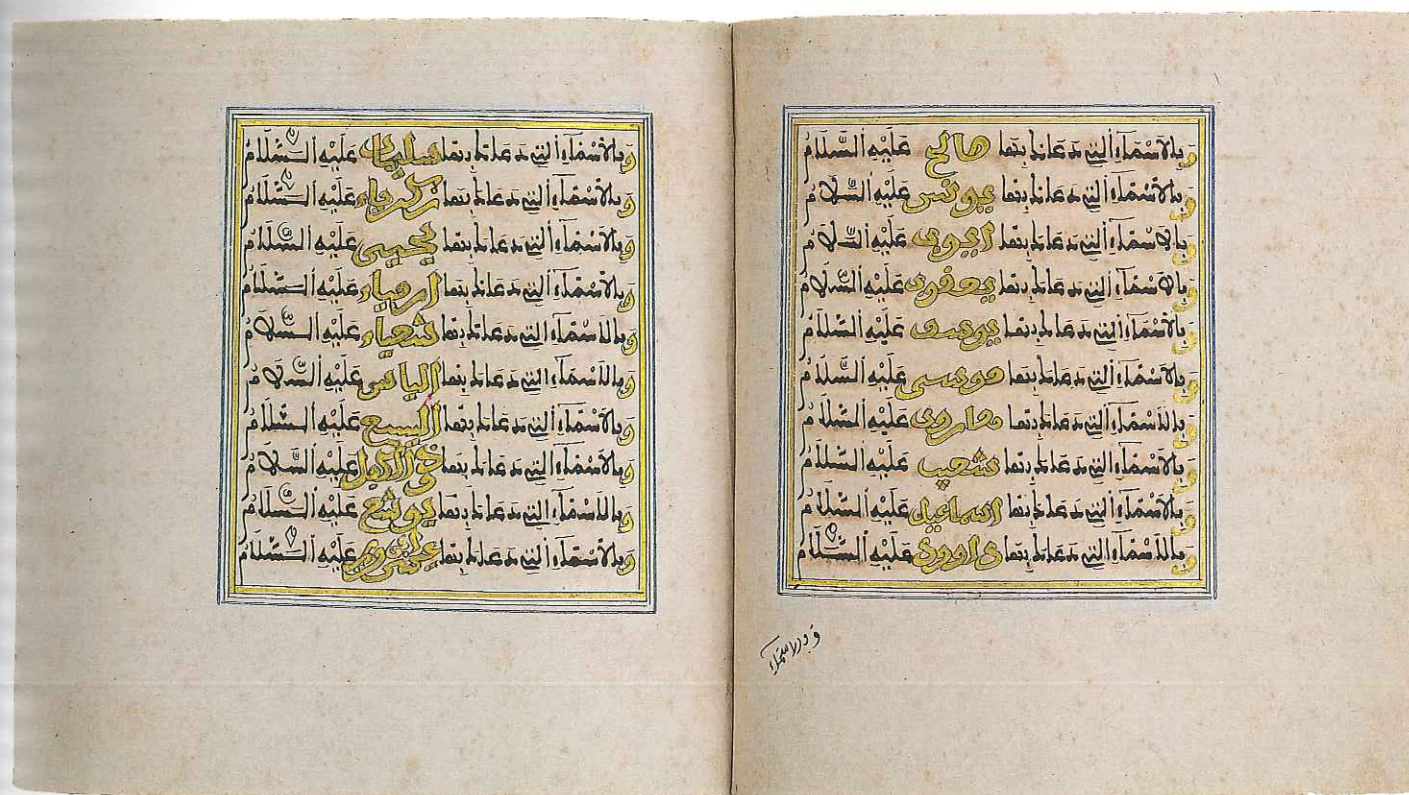 وَبِالأَسْمَاءِ الَّتِي دَعَاكَ بِهَا صالح عَلَيْهِ السَّلَامُ
وَبِالأَسْمَاءِ الَّتِي دَعَاكَ بِهَا يونس عَلَيْهِ السَّلَامُ
وَبِالأَسْمَاءِ الَّتِي دَعَاكَ بِهَا ايوب عَلَيْهِ السَّلَامُ
وَبِالأَسْمَاءِ الَّتِي دَعَاكَ بِهَا يعقوب عَلَيْهِ السَّلَامُ
وَبِالأَسْمَاءِ الَّتِي دَعَاكَ بِهَا يوسف عَلَيْهِ السَّلَامُ
وَبِالأَسْمَاءِ الَّتِي دَعَاكَ بِهَا موسى عَلَيْهِ السَّلَامُ
وَبِالأَسْمَاءِ الَّتِي دَعَاكَ بِهَا هارون عَلَيْهِ السَّلَامُ
وَبِالأَسْمَاءِ الَّتِي دَعَاكَ بِهَا شعيب عَلَيْهِ السَّلَامُ
وَبِالأَسْمَاءِ الَّتِي دَعَاكَ بِهَا اسماعيل عَلَيْهِ السَّلَامُ
وَبِالأَسْمَاءِ الَّتِي دَعَاكَ بِهَا داوود عَلَيْهِ السَّلَامُ
وبالاسماء
وَبِالأَسْمَاءِ الَّتِي دَعَاكَ بِهَا سليمان عَلَيْهِ السَّلَامُ
وَبِالأَسْمَاءِ الَّتِي دَعَاكَ بِهَا زكرياء عَلَيْهِ السَّلَامُ
وَبِالأَسْمَاءِ الَّتِي دَعَاكَ بِهَا يحيى عَلَيْهِ السَّلَامُ
وَبِالأَسْمَاءِ الَّتِي دَعَاكَ بِهَا ارمياء عَلَيْهِ السَّلَامُ
وَبِالأَسْمَاءِ الَّتِي دَعَاكَ بِهَا شعياء عَلَيْهِ السَّلَامُ
وَبِالأَسْمَاءِ الَّتِي دَعَاكَ بِهَا الياس عَلَيْهِ السَّلَامُ
وَبِالأَسْمَاءِ الَّتِي دَعَاكَ بِهَا اليسع عَلَيْهِ السَّلَامُ
وَبِالأَسْمَاءِ الَّتِي دَعَاكَ بِهَا ذو الكفل عَلَيْهِ السَّلَامُ
وَبِالأَسْمَاءِ الَّتِي دَعَاكَ بِهَا يوشع عَلَيْهِ السَّلَامُ
وَبِالأَسْمَاءِ الَّتِي دَعَاكَ بِهَا عَلَيْهِ السَّلَامُ